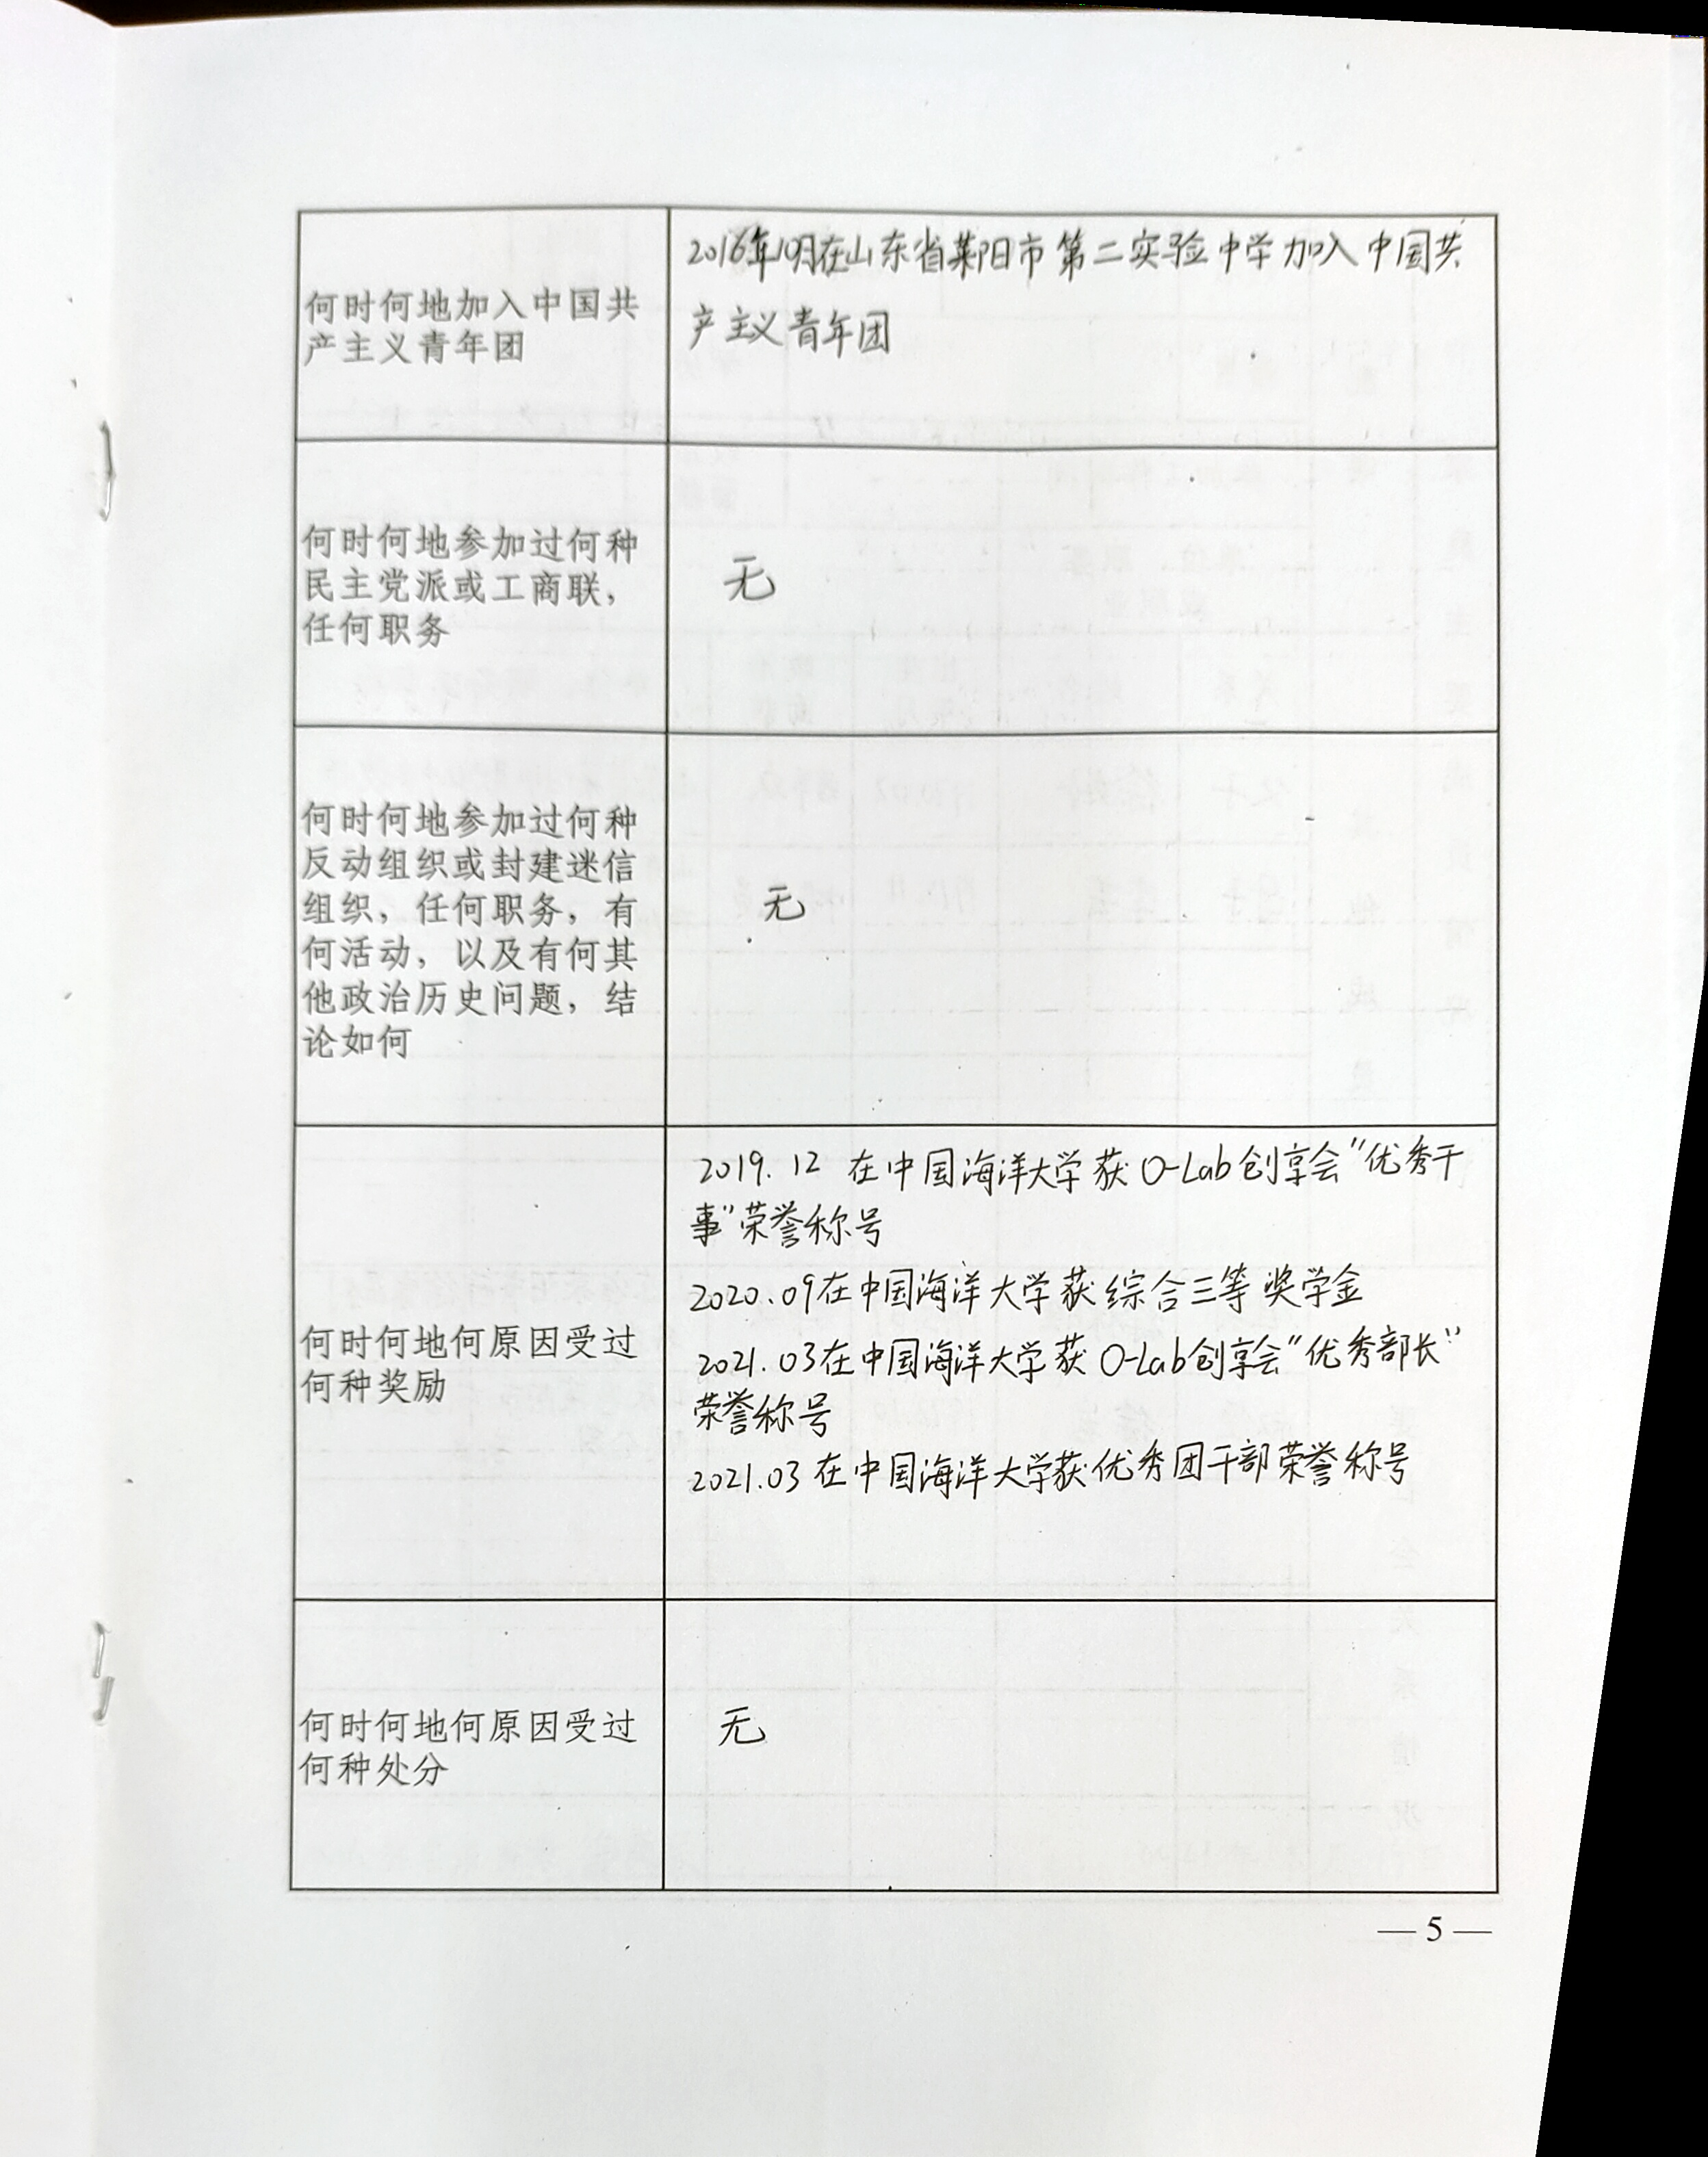 何时何地加入中国共
产主义青年团
2016年10月在山东省莱阳市第二实验中学加入中国共
产主义青年团
何时何地参加过何种
民主党派或工商联，
任何职务
无
何时何地参加过何种
反动组织或封建迷信
组织，任何职务，有
何活动，以及有何其
他政治历史问题，结
论如何
无
何时何地何原因受过
何种奖励
2019.12 在中国海洋大学获O-Lab创享会"优秀干
事"荣誉称号
2020.09在中国海洋大学获综合三等奖学金
2021.03在中国海洋大学获O-Lab创享会"优秀部长"
荣誉称号
2021.03在中国海洋大学获优秀团干部荣誉称号
何时何地何原因受过
何种处分
无
— 5 —